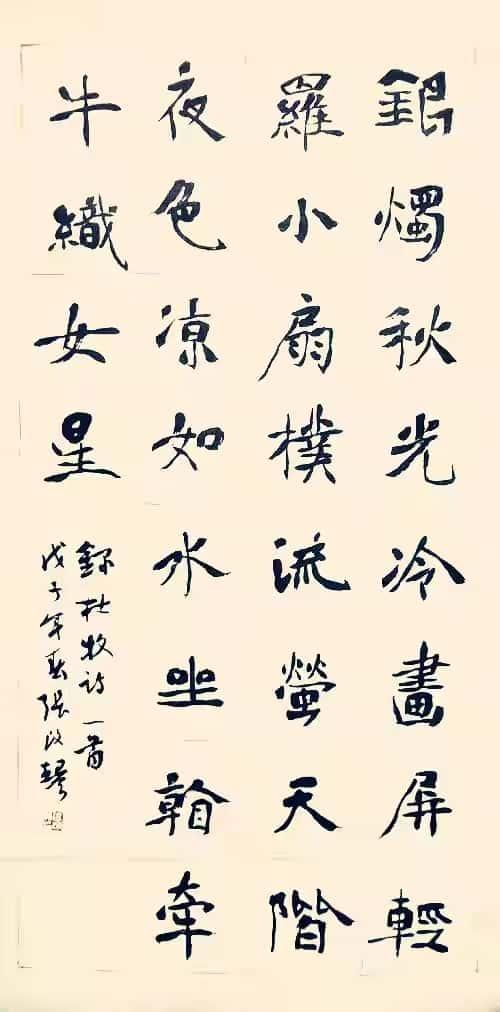 銀燭秋光冷畫屏輕
羅小扇樸流螢天階
夜色凉如水坐看牽
牛織女星
錄杜牧詩一首
戊子年春張改琴